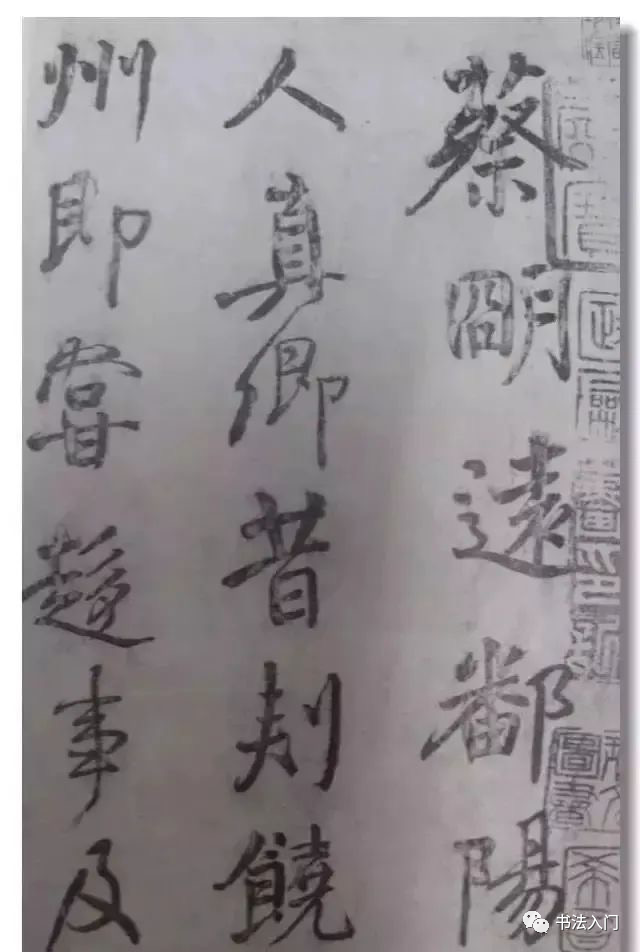 蔡朙遠鄱陽
人真卿昔刾饒
州即甞趍事及
书法入门